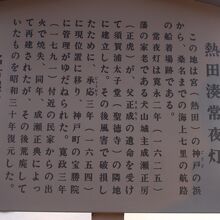 熱田湊常夜灯
この地は宮(熱田)の神戸の浜
から、桑名までの海上七里の航路
の船着場跡である。
常夜灯は寛永二年(一六二五)
藩の家老である犬山城主成瀬正房
(正虎)が、父正成の遺命を受け
て須賀浦太子堂(聖徳寺)の隣地
に建立した。その後風害で破損し
たために、承応三年(一六五四)
に現位置に移り、神戸町の宝勝院
に管理がゆだねられた。寛政三年
(一七九一)付近の民家からの出
火で焼失、同年、成瀬正典によっ
て再建されたが、その後荒廃して
いたものを昭和三十年復元した。